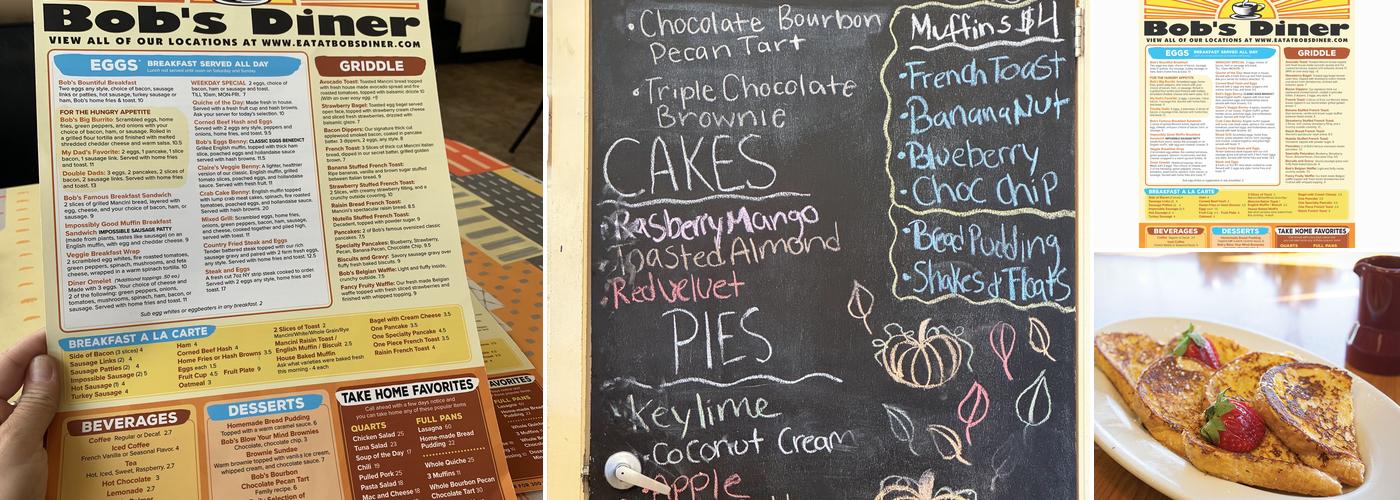 Bob's Diner
VIEW ALL OF OUR LOCATIONS AT WWW.EATATBOBSDINER.COM
EGGS BREAKFAST SERVED ALL DAY
Lunch not served until noon on Saturday and Sunday
Bob's Bountiful Breakfast
Two eggs any style, choice of bacon, sausage
links or patties, hot sausage, turkey sausage or
ham, Bob's home fries & toast. 10
FOR THE HUNGRY APPETITE
Bob's Big Burrito: Scrambled eggs, home
fries, green peppers, and onions with your
choice of bacon, ham, or sausage. Rolled in
a grilled flour tortilla and finished with melted
shredded cheddar cheese and warm salsa. 10.5
My Dad's Favorite: 2 eggs, 1 pancake, 1 slice
bacon, 1 sausage link. Served with home fries
and toast. 11
Double Dads: 3 eggs, 2 pancakes, 2 slices of
bacon, 2 sausage links. Served with home fries
and toast. 13
Bob's Famous Breakfast Sandwich
2 slices of grilled Mancini bread, layered with
egg, cheese, and your choice of bacon, ham, or
sausage. 9
Impossibly Good Muffin Breakfast
Sandwich IMPOSSIBLE SAUSAGE PATTY
(made from plants, tastes like sausage) on an
English muffin, with egg and cheddar cheese. 9
Veggie Breakfast Wrap
2 scrambled egg whites, fire roasted tomatoes,
green peppers, spinach, mushrooms, and feta
cheese, wrapped in a warm spinach tortilla. 10
Diner Omelet (Additional toppings .50 ea.)
Made with 3 eggs. Your choice of cheese and
2 of the following: green peppers, onions,
tomatoes, mushrooms, spinach, ham, bacon, or
sausage. Served with home fries or toast. 11
WEEKDAY SPECIAL 2 eggs, choice of
bacon, ham or sausage and toast.
TILL 10AM, MON-FRI. 7
Quiche of the Day: Made fresh in house.
Served with a fresh fruit cup and hash browns.
Ask your server for today's selection. 10
Corned Beef Hash and Eggs
Served with 2 eggs any style, peppers and
onions, home fries and toast.
Bob's Eggs Benny: CLASSIC EGGS BENEDICT
Grilled English muffin, topped with thick ham
slice, poached eggs and hollandaise sauce
served with hash browns. 11.5
Claire's Veggie Benny: A lighter, healthier
version of ours, with spinach, tomato,
poached eggs and hollandaise sauce.
Served with fresh fruit. 11
Crab Cake Benny: English muffin topped
with lump crab meat cakes, spinach, fire roasted
tomatoes, poached eggs, and hollandaise.
Served with hash browns. 20
Mixed Grill: Scrambled eggs, home fries,
onions, green peppers, bacon, ham, sausage,
and cheese, cooked together and piled high.
Served with toast. 11
Country Fried Steak and Eggs
Tender battered steak topped with our rich
sausage gravy and paired with 2 fresh eggs,
any style. Served with home fries and toast. 12.5
Steak and Eggs
A fresh cut 7oz NY strip steak cooked to order.
Served with 2 eggs any style, home fries and
toast. 17
Sub egg whites or eggbeaters in any breakfast. 2
GRIDDLE
Avocado Toast: Toasted Mancini bread topped
with fresh house made avocado spread and fire
roasted tomatoes, topped with balsamic drizzle 10
(With an over easy egg. +1)
Strawberry Bagel: Toasted egg bagel served
open faced topped with strawberry cream cheese
and sliced fresh strawberries, drizzled with
balsamic glaze. 7
Bacon Dippers: Our signature thick cut
applewood smoked bacon, coated in pancake
batter. 3 dippers, 2 eggs, any style. 8
French Toast: 3 Slices of thick cut Mancini Italian
bread, dipped in batter, grilled golden
brown. 7
Banana Stuffed French Toast:
Ripe bananas, vanilla and brown sugar stuffed
between Italian bread. 9
Strawberry Stuffed French Toast:
2 Slices, with creamy strawberry filling, and a
crunchy coating. 10
Raisin Bread French Toast:
Mancini's spectacular raisin bread. 8.5
Nutella Stuffed French Toast:
Dusted with powder sugar. 9
Pancakes: 2 of Bob's famous oversized classic
pancakes. 7.5
Specialty Pancakes: Blueberry, Strawberry,
Raisin, Banana-Pecan, Chocolate Chip. 9.5
Biscuits and Gravy: Savory sausage gravy over
fluffy fresh baked biscuits. 9
Bob's Belgian Waffle: Light and fluffy inside,
crunchy outside. 7.5
Fancy Fruity Waffle: Our fresh made Belgian
waffle topped with fresh sliced strawberries and
finished with whipped topping. 9
BREAKFAST A LA CARTE
Side of Bacon (3 slices) 4
Sausage Links (2) 4
Sausage Patties (2) 4
Impossible Sausage (2) 5
Hot Sausage (1) 4
Turkey Sausage 4
Ham 4
Corned Beef Hash 4
Home Fries or Hash Browns 3.5
Eggs each 1.5
Fruit Cup 4.5 Fruit Plate 9
Oatmeal 3
2 Slices of Toast 2
Mancini/White/Whole Grain/Rye
Mancini Raisin Toast /
English Muffin / Biscuit 2.5
House Baked Muffin
Ask what varieties were baked fresh
this morning - 4 each
Bagel with Cream Cheese 3.5
One Pancake 3.5
One Specialty Pancake 4.5
One Piece French Toast 3.5
Raisin French Toast 4
BEVERAGES
Coffee Regular or Decaf. 2.7
Iced Coffee
French Vanilla or Seasonal Flavors 4
Tea
Hot, Iced, Sweet, Raspberry. 2.7
Hot Chocolate 3
Lemonade 2.7
DESSERTS
Homemade Bread Pudding
Topped with a warm caramel sauce. 6
Bob's Blow Your Mind Brownies
Chocolate, chocolate chip. 3
Brownie Sundae
Warm brownie topped with vanilla ice cream,
whipped cream, and chocolate sauce. 7
Bob's Bourbon
Chocolate Pecan Tart
Family recipe. 6
TAKE HOME FAVORITES
Call ahead with a few days notice and
you can take home any of these popular items
QUARTS
Chicken Salad 25
Tuna Salad 23
Soup of the Day 17
Chili 19
Pulled Pork 25
Pasta Salad 18
Mac and Cheese 18
FULL PANS
Lasagna 60
Home-made Bread
Pudding 22
Whole Quiche 25
3 Muffins 11
Whole Bourbon Pecan
Chocolate Tart 30
• Chocolate Bourbon
Pecan Tart
• Triple Chocolate
Brownie
CAKES
• Rasberry Mango
• Toasted Almond
• Red Velvet
PIES
• Keylime
• Coconut Cream
• Apple
Muffins $4
• French Toast
• Banana Nut
• Blueberry
• Choc Chip
• Bread Pudding
• Shakes & Floats
Bob's Diner
VIEW ALL OF OUR LOCATIONS AT WWW.EATATBOBSDINER.COM
EGGS BREAKFAST SERVED ALL DAY
GRIDDLE
BREAKFAST A LA CARTE
BEVERAGES
DESSERTS
TAKE HOME FAVORITES
QUARTS
FULL PANS